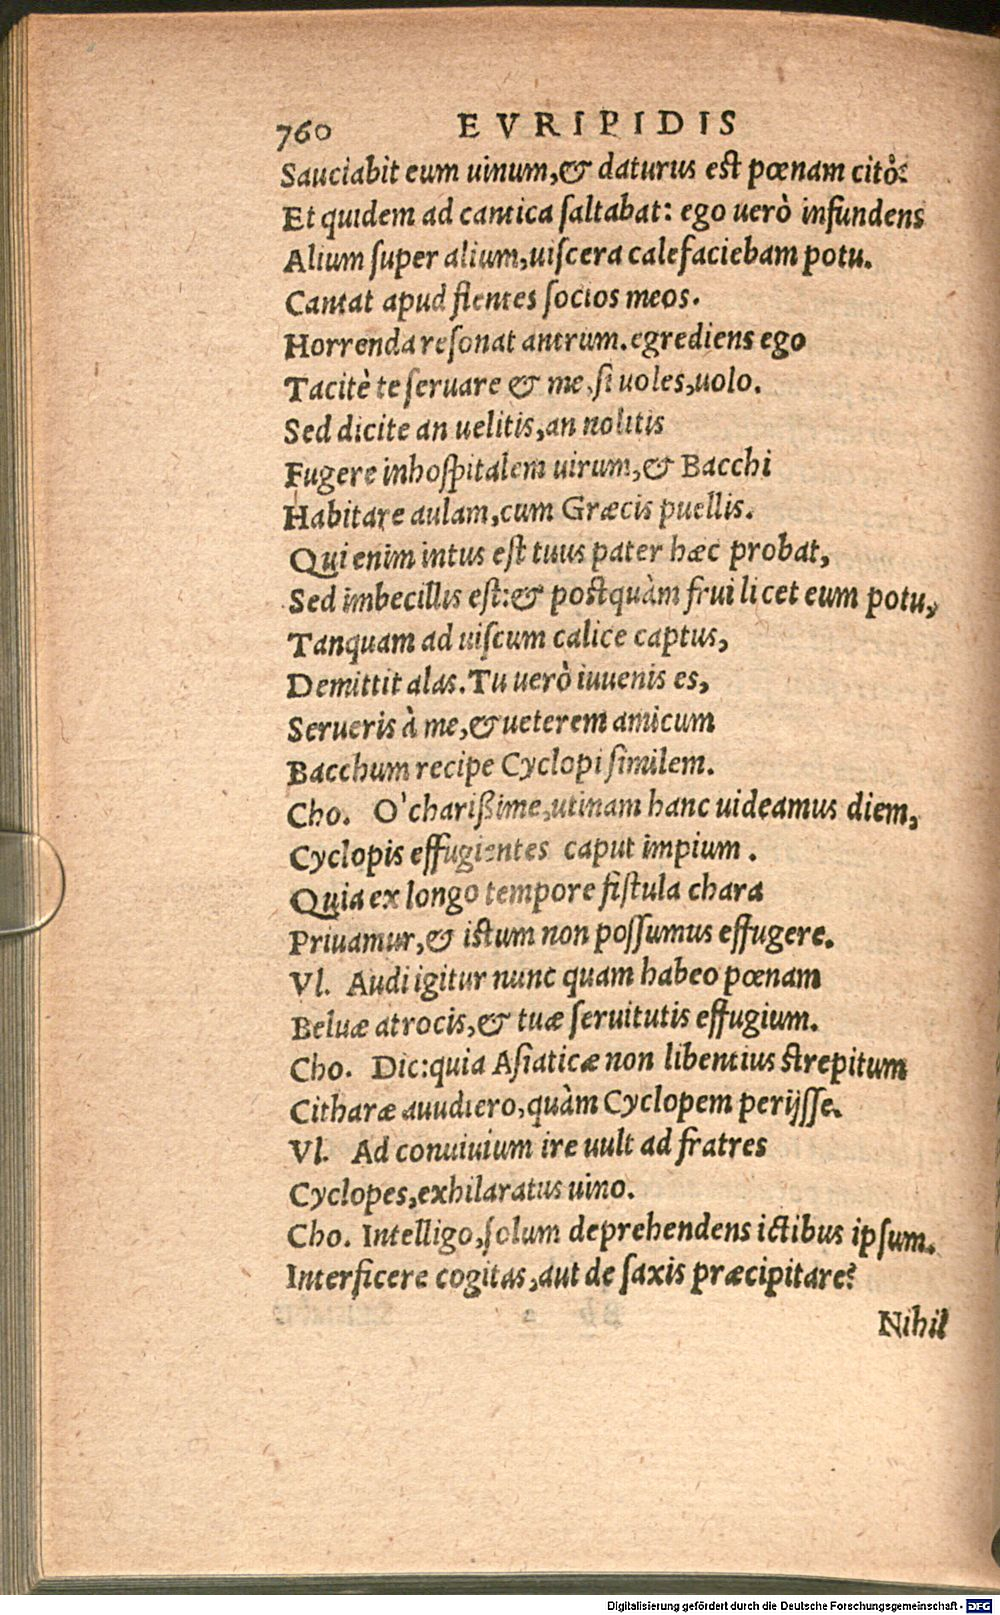 760 EVRIPIDIS
Sauciabit eum uinum,& daturus est pœnam citò:
Et quidem ad cantica saltabat: ego uerò infundens
Alium super alium,uiscera calefaciebam potu.
Cantat apud flentes socios meos.
Horrenda resonat antrum.egrediens ego
Tacitè te seruare & me,si uoles,uolo.
Sed dicite an uelitis,an nolitis
Fugere inhospitalem uirum,& Bacchi
Habitare aulam,cum Græcis puellis.
Qui enim intus est tuus pater hæc probat,
Sed imbecillis est:& postquàm frui licet eum potu,
Tanquam ad uiscum calice captus,
Demittit alas.Tu uerò iuuenis es,
Serueris à me,& ueterem amicum
Bacchum recipe Cyclopi similem.
Cho. O' charißime,utinam hanc uideamus diem,
Cyclopis effugientes caput impium .
Quia ex longo tempore fistula chara
Priuamur,& istum non possumus effugere.
Vl. Audi igitur nunc quam habeo pœnam
Beluæ atrocis,& tuæ seruitutis effugium.
Cho. Dic:quia Asiaticæ non libentius strepitum
Citharæ auudiero,quàm Cyclopem perijsse.
Vl. Ad conuiuium ire uult ad fratres
Cyclopes,exhilaratus uino.
Cho. Intelligo,solum deprehendens ictibus ipsum.
Interficere cogitas,aut de saxis præcipitare?
Nihil
Digitalisierung gefördert durch die Deutsche Forschungsgemeinschaft - DFG